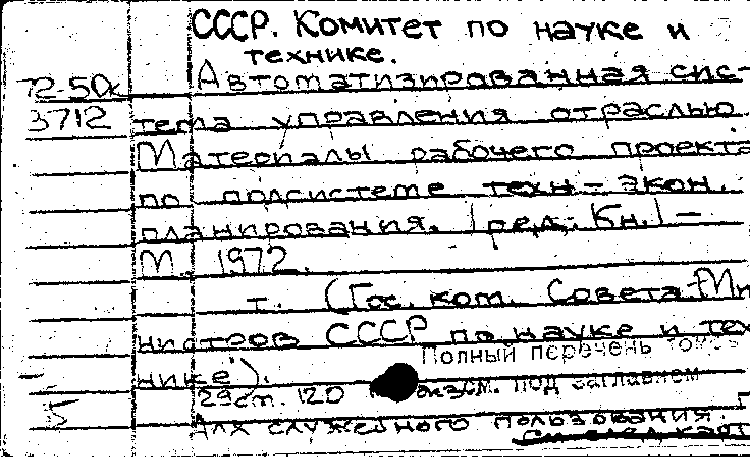 СССР. Комитет по науке и
технике.
72-50к
Автоматизированная сис-
3712
тема управления отраслью
Материалы рабочего проекта
по подсистеме техн-экон.
планирования. [ред. Кн.] –
М. 1972.
т. (Гос. ком. Совета Ми
нистров СССР по науке и тех
нике).
Полный перечень
29 ст. 120 экз. см. под заглавием
5
Для служебного пользования.
См. след. карт